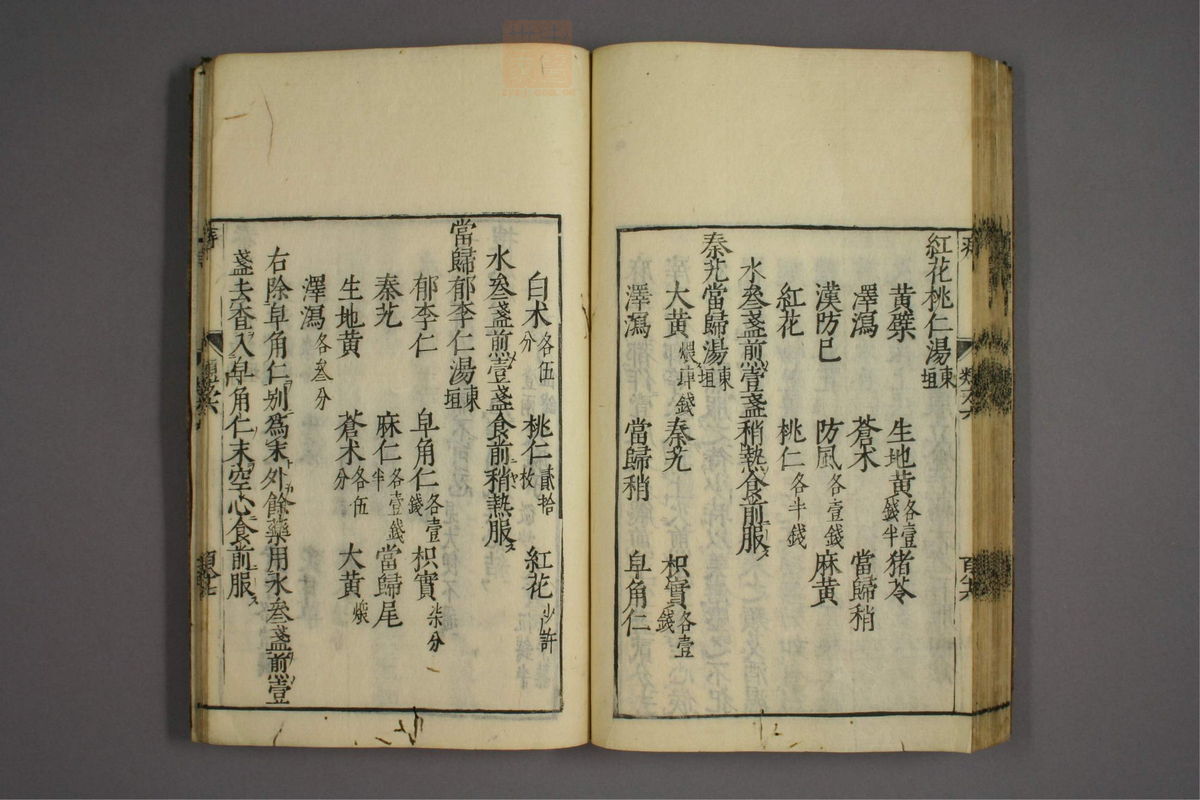 紅花桃仁湯東垣
黃檗 生地黃各壹錢半 猪苓
澤瀉 蒼朮 當歸稍
漢防已 防風各壹錢 麻黃
紅花 桃仁各半錢
水叄盞煎壹盞稍熱食前服
秦艽當歸湯東垣
大黃煨肆錢 秦艽 枳實各壹錢
澤瀉 當歸稍 皁角仁
白朮各伍分 桃仁貳拾枚 紅花少許
水叄盞煎壹盞食前稍熱服
當歸郁李仁湯東垣
郁李仁 皁角仁各壹錢 枳實柒分
秦艽 麻仁各壹錢半 當歸尾
生地黃 蒼朮各伍分 大黃煨
澤瀉各叄分
右除皁角仁別爲末外餘藥用水叄盞煎壹
盞去査入皁角仁末空心食前服